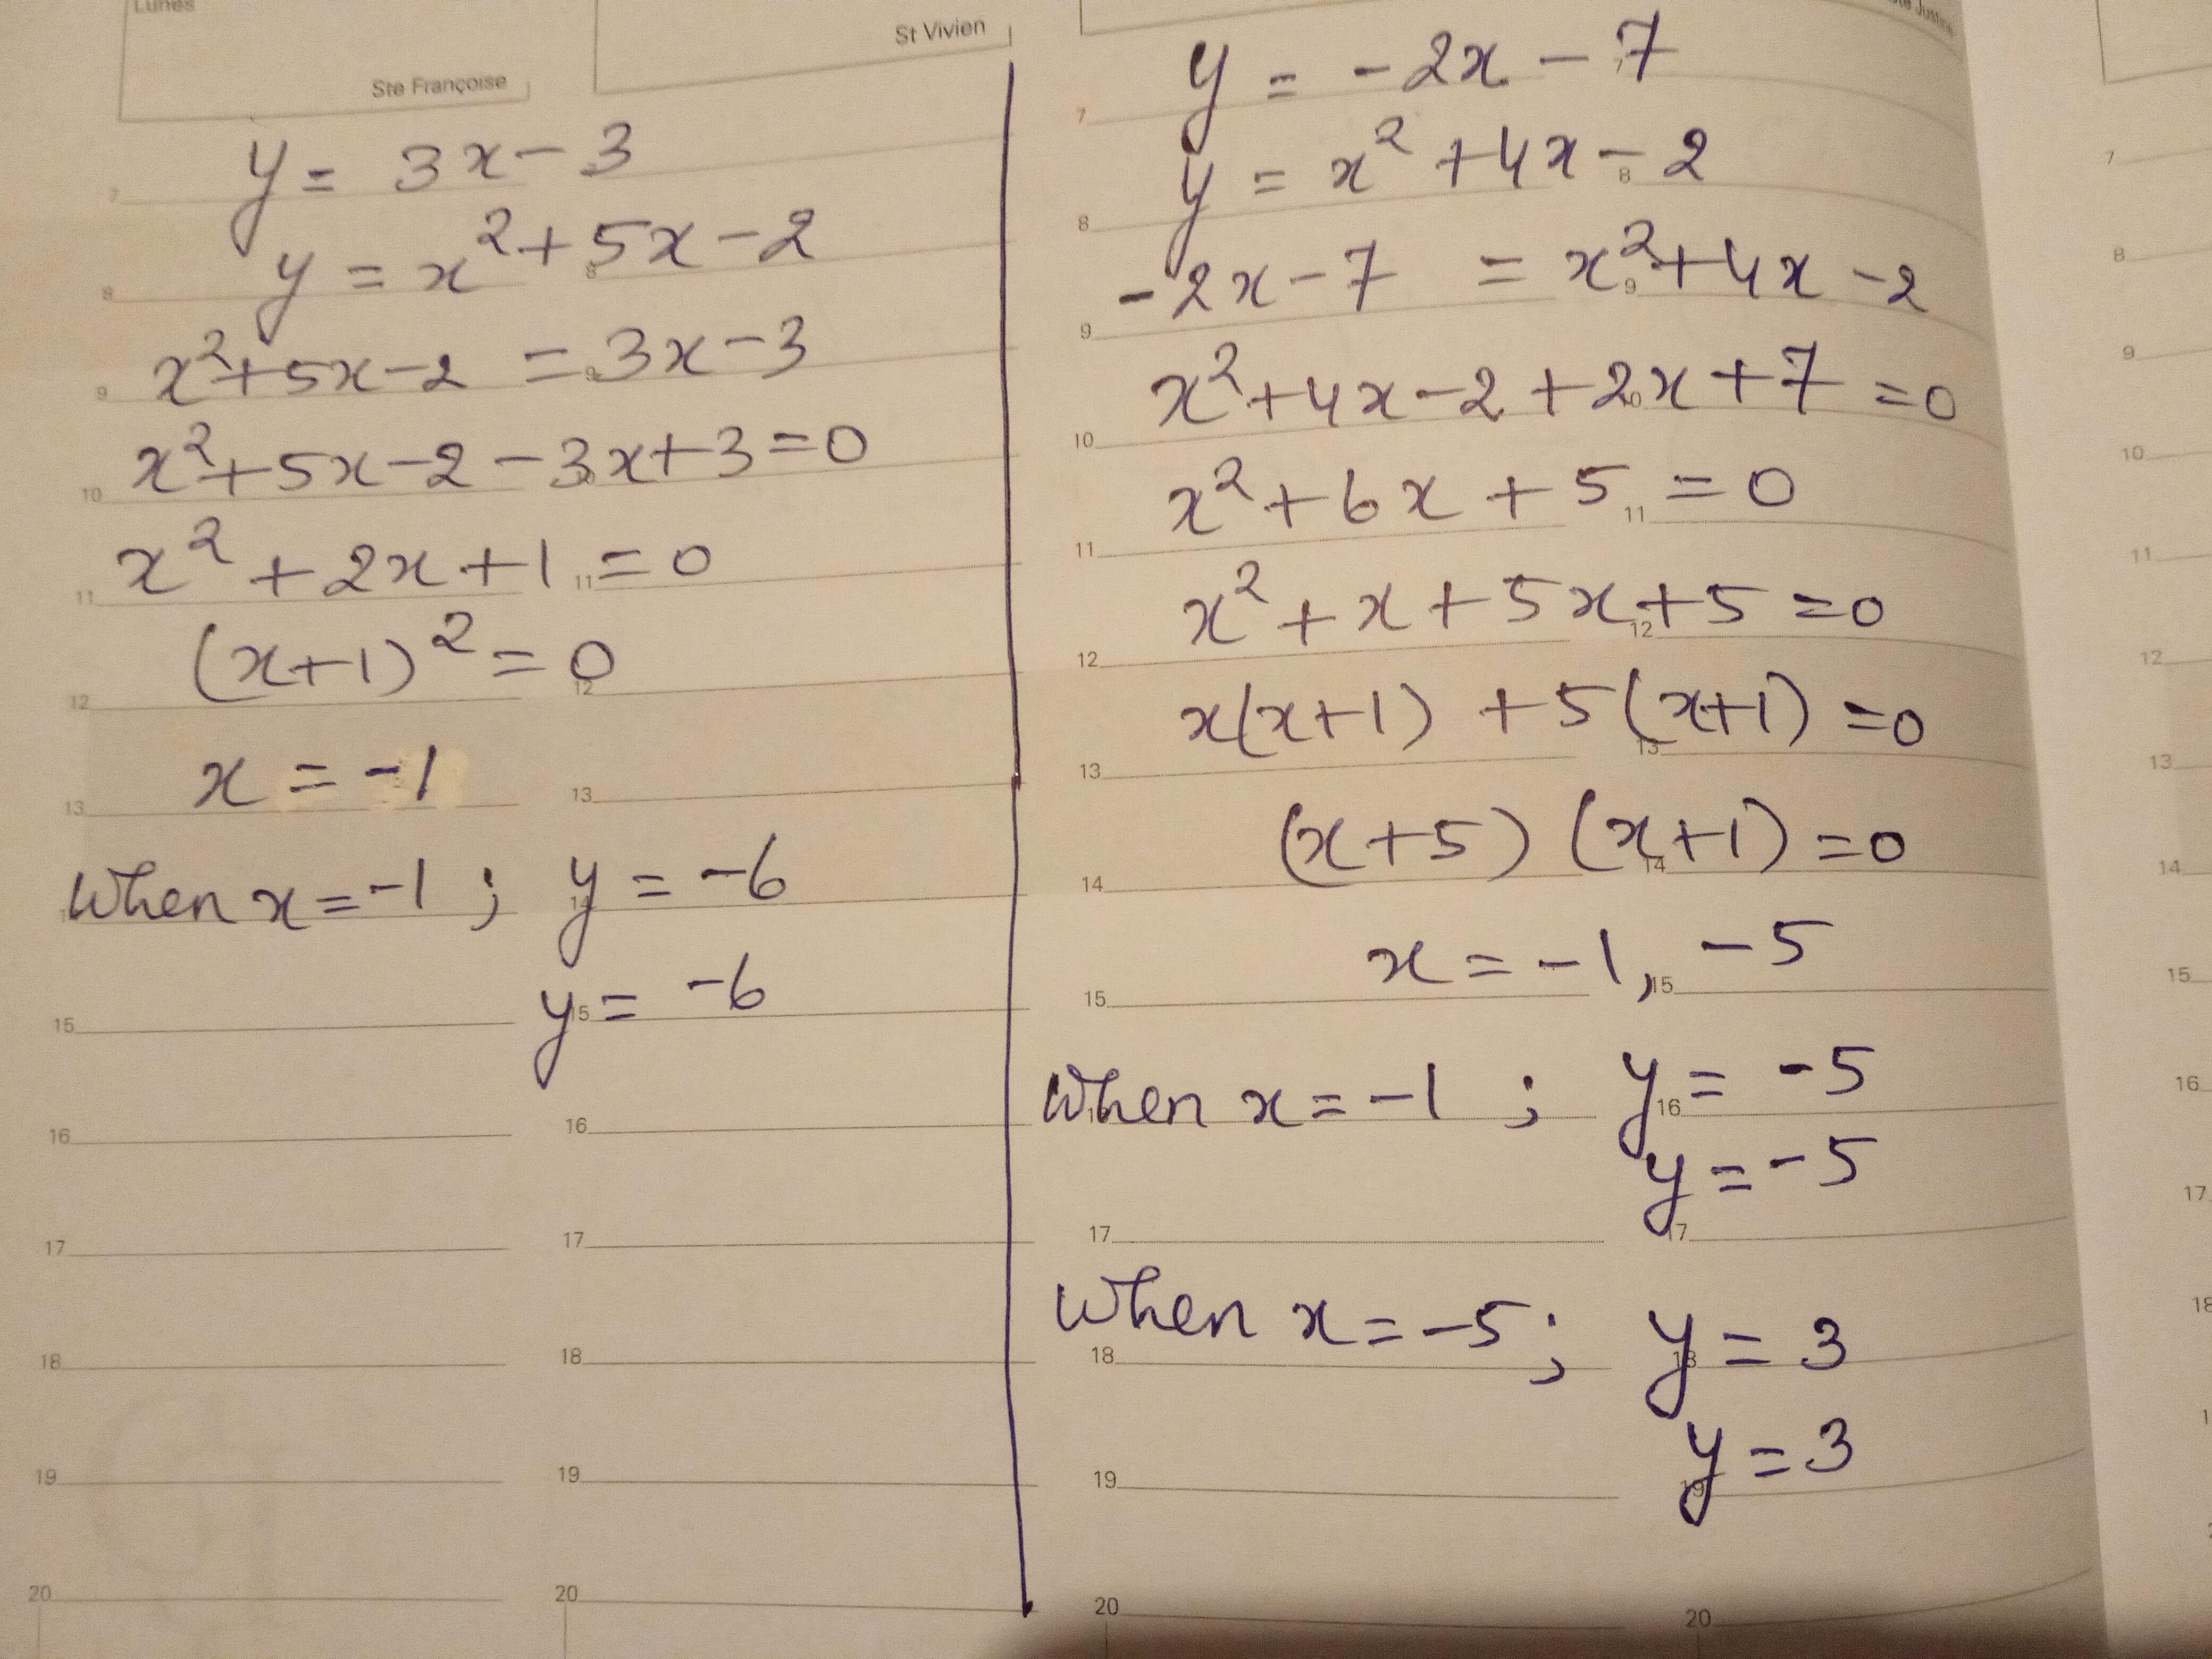 Lunes
Ste Françoise
St Vivien
y = 3x - 3
y = x² + 5x - 2
x² + 5x - 2 = 3x - 3
x² + 5x - 2 - 3x + 3 = 0
x² + 2x + 1 = 0
(x+1)² = 0
x = -1
When x = -1 ; y = -6
y = -6
7
8
9
10
11
12
13
14
15
16
17
18
19
20
8
9
11
12
13
14
15
16
17
18
19
20
y = -2x - 7
y = x² + 4x - 2
-2x - 7 = x² + 4x - 2
x² + 4x - 2 + 2x + 7 = 0
x² + 6x + 5 = 0
x² + x + 5x + 5 = 0
x(x+1) + 5(x+1) = 0
(x+5) (x+1) = 0
x = -1, -5
When x = -1 ; y = -5
y = -5
When x = -5 ; y = 3
y = 3
7
8
9
10
11
12
13
14
15
17
18
19
20
7
8
9
11
12
13
14
15
16
17
18
19
20
7
8
9
10
11
12
13
14
15
16
17
18